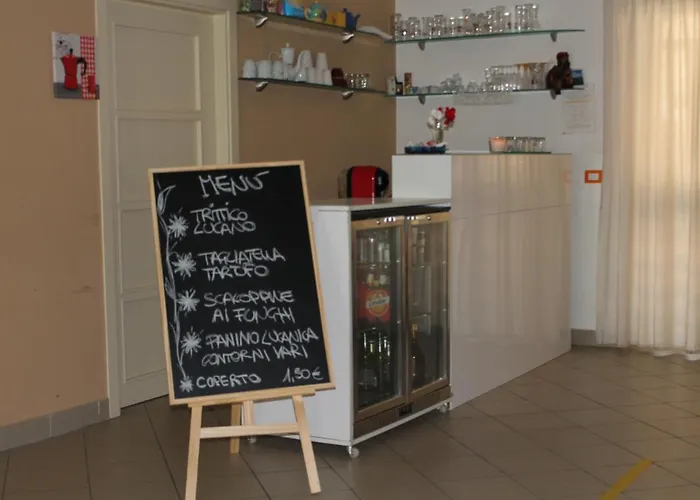 MENÙ
TRITTICO
LUCANO
TAGLIATELLA
TARTOFO
SCACOPPINE
AI FUNGHI
PANINO LUCANICA
CONTORNI VARI
COPERTO 1,50 €